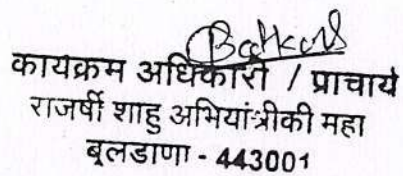 कायक्रम अधिकारी / प्राचार्य
राजर्षी शाहु अभियांत्रीकी महा
बुलडाणा - 443001